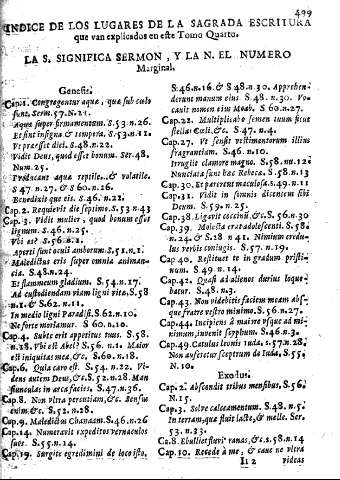 499
INDICE DE LOS LUGARES DE LA SAGRADA ESCRITURA
que van explicados en este Tomo Quarto.
LA S. SIGNIFICA SERMON, Y LA N. EL NUMERO
Marginal.
Genesis.
Cap. 1. Congregentur aquæ, quæ sub cœlo
sunt, Serm. 57. N. 21.
Aquæ super firmamentum. S. 53. n. 26.
Et sint in signa & tempora. S. 53. n. 11.
Vt præesset diei. s. 48. n. 22.
Vidit Deus, quod esset bonum. Ser. 48.
Num. 25.
Producant aquæ reptile... & volatile.
S 47 n. 27. & S 60. n. 26.
Benedixit que eis. s. 46. n. 22.
Cap. 2. Requievit die septimo. S. 53 n. 43
Cap. 3. Vidit mulier, quod bonum esset
lignum. S. 46. n. 25.
Vbi es? S. 56. n. 1.
Aperti sunt oculi amborum. S. 51. n. 1.
Maledictus eris super omnia animan-
cia. S. 48. n. 24.
Et flammeum gladium. S. 54. n. 17.
Ad custodiendam viam ligni vitæ, S. 58
n. 1. & S. 62. n. 11.
In medio ligni Paradisi. S. 62. n. 10.
Ne forte moriamur. S 60. n. 10.
Cap. 4. Subter erit appetitus tuus. S. 58.
n. 28. Vbi est Abel? S. 56. n. 1. Maior
est iniquitas mea, &c. S. 60. n. 18.
Cap. 6. Quia caro est. S. 54. n. 22. Vi-
dens autem Deus, &c. S. 52. n. 28. Man
siunculas in arca facies. S. 47. n. 36.
Cap. 8. Non ultra percutiam, &c. Sensus
enim, &c. S. 52. n. 28.
Cap. 9. Maledictus Chanaam. S. 46. n. 26
Cap. 14. Numeravit expeditos vernaculos
suos. S. 55. n. 14.
Cap. 19. Surgite egredimini de loco isto,
S. 46. n. 16. & S 48. n. 30. Apprehen-
derunt manum eius S 48. n. 30. Vo-
cavit nomen eius Moab. S 60. n. 27.
Cap. 22. Multiplicabo semen tuum sicut
stellas Cœli, &c. S 47. n. 4.
Cap. 27. Vt sensit vestimentorum illius
fragrantiam. S 46. n. 10.
Irrugiit clamore magno. S. 58. nu. 12.
Nunciata sunt hæc Rebecæ. S. 58. n. 13
Cap. 30. Et parerent maculosa. s. 49. n. 11
Cap. 31. Vidit in somnis dicentem sibi
Deum. S 59. n. 25.
Cap. 38. Ligavit coccinū, &c. S, 56. n. 30
Cap. 39. Molesta erat adolescenti. S. 58
n. 24. & S. 28 n 41. Nimium credu-
lus verbis coniugis. S 57. n. 19.
Cap. 40. Restituet te in gradum pristi-
num. S 49 n. 14.
Cap. 42. Quasi ad alienos durius loque-
batur. S 48. n. 3.
Cap. 43. Non videbitis faciem meam abs-
que fratre vestro minimo. S. 56. n. 27.
Cap. 44. Incipiens à maiore vsque ad mi-
nimum, invenit scyphum. S. 46. n. 3.
Cap. 49. Catulus leonis Iuda. s. 57. n. 28.
Non auferetur sceptrum de Iuda, S. 55.
N. 10.
Exodus.
Cap. 2. Abscondit tribus mensibus, S 56.
N. 15.
Cap. 3. Solve calceamentum. S 48. n. 5.
In terram, quæ fluit lacte, & melle. Ser
53. n. 23.
Ca. 8. Ebulliet fluvi' ranas, &c. s. 58. n. 14
Cap. 10. Recede à me, & cave ne vltra
Ii 2 videas